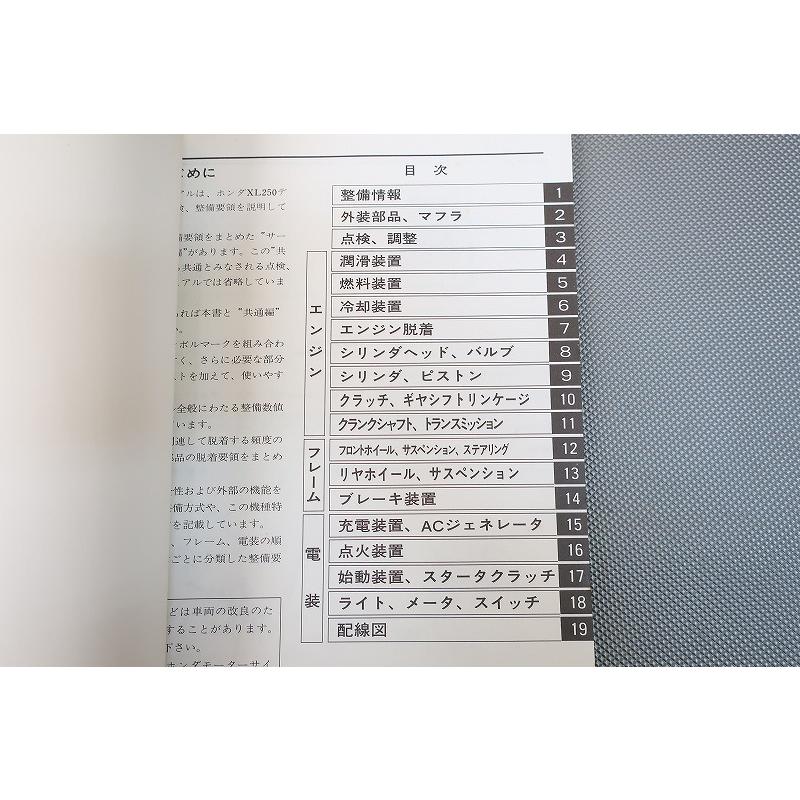 じめに
アルは、ホンダXL250デ
検、整備要領を説明して
備要領をまとめた "サー
編"があります。この"共
る共通とみなされる点検、
ュアルでは省略していま
あれば本書と "共通編"
い。
ンボルマークを組み合わ
すく、さらに必要な部分
ストを加えて、使いやす
ル全般にわたる整備数値
ています。
関連して脱着する頻度の
部品の脱着要領をまとめ
性および外部の機能を
備方式や、この機種特
を記載しています。
、フレーム、電装の順
ごとに分類した整備要
どは車両の改良のた
することがあります。
下さい。
ホンダモーターサイ
目 次
整備情報 1
外装部品、マフラ 2
点検、調整 3
エンジン
潤滑装置 4
燃料装置 5
冷却装置 6
エンジン脱着 7
シリンダヘッド、バルブ 8
シリンダ、ピストン 9
クラッチ、ギヤシフトリンケージ 10
クランクシャフト、トランスミッション 11
フレーム
フロントホイール、サスペンション、ステアリング 12
リヤホイール、サスペンション 13
ブレーキ装置 14
電装
充電装置、ACジェネレータ 15
点火装置 16
始動装置、スタータクラッチ 17
ライト、メータ、スイッチ 18
配線図 19